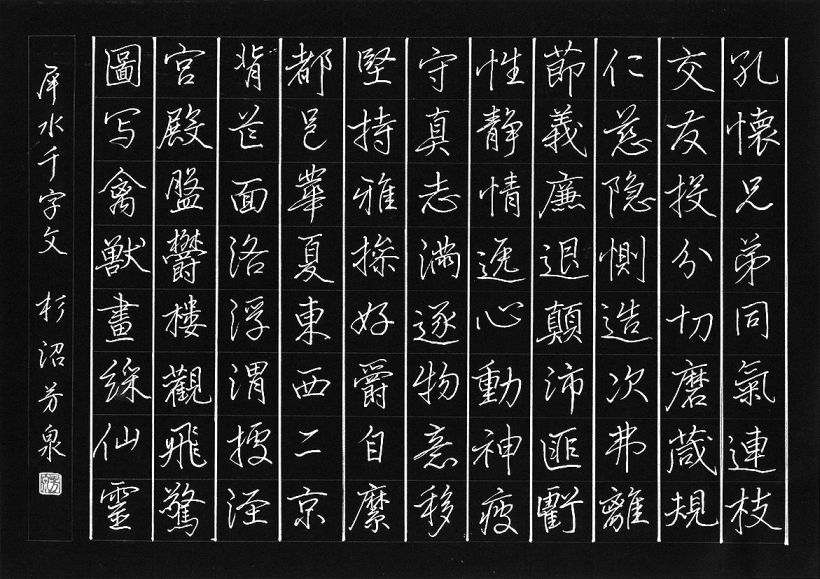 孔懐兄弟同氣連枝
交友投分切磨箴規
仁慈隐惻造次弗離
節義廉退顛沛匪虧
性静情逸心動神疲
守真志満逐物意移
堅持雅操好爵自縻
都邑華夏東西二京
背芒面洛浮渭據涇
宮殿盤欝樓觀飛驚
圖写禽獣畫綵仙靈
犀水千字文 杉沼芳泉